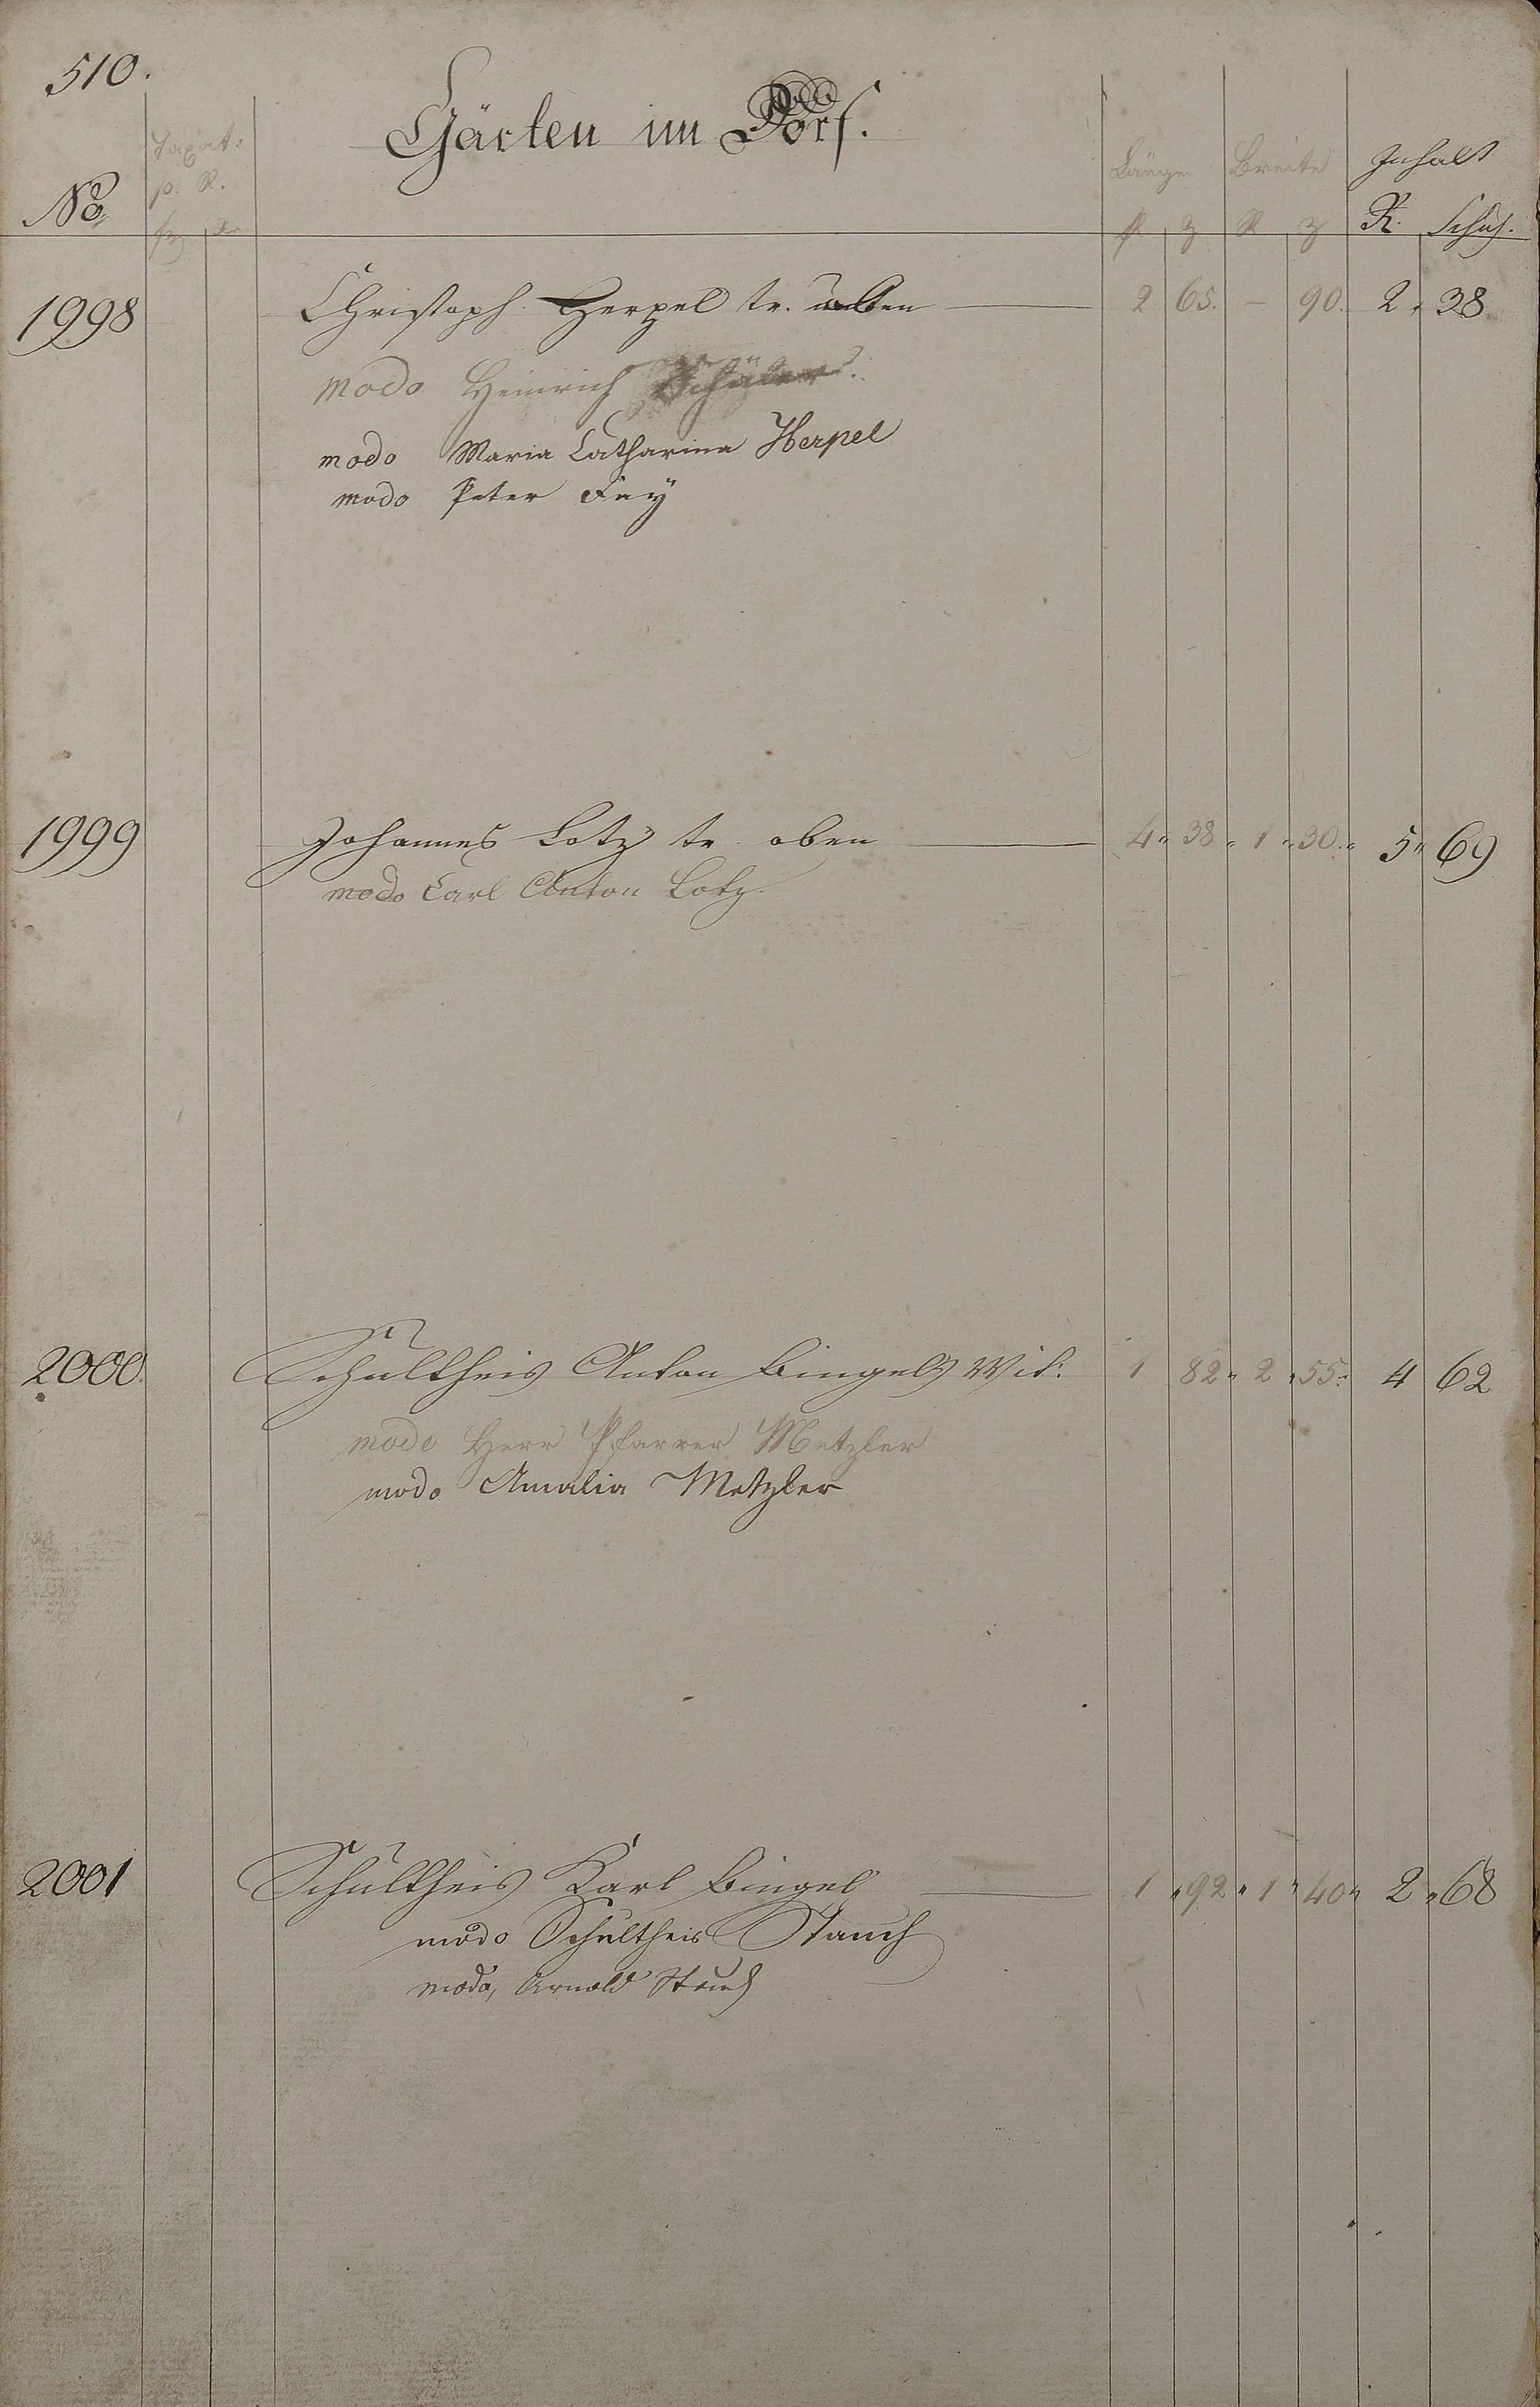 510.
Gärten im Dorf.
No
Taxat:
p. R.
fl
xr
Länge
Breite
Inhalt
R
z
R
z
R.
Schuh.
1998 Christoph Herpel tr. oben 2 65. — 90. 2 „ 38
modo Heinrich
modo Maria Catharina Herpel
modo Peter Fay
1999 Johannes Lotz tr. oben 4 „ 38 „ 1 „ 30 „ 5 „ 69
modo Carl Anton Lotz.
2000. Schultheis Anton Bingels Wit: 1 82 „ 2 „ 55 „ 4 62
modo Herr Pfarrer Metzler
modo Amalia Metzler
2001 Schultheis Karl Bingel 1 „ 92 „ 1 „ 40 „ 2 „ 68
modo Schultheis Stauch
modo, Arnold Stauch